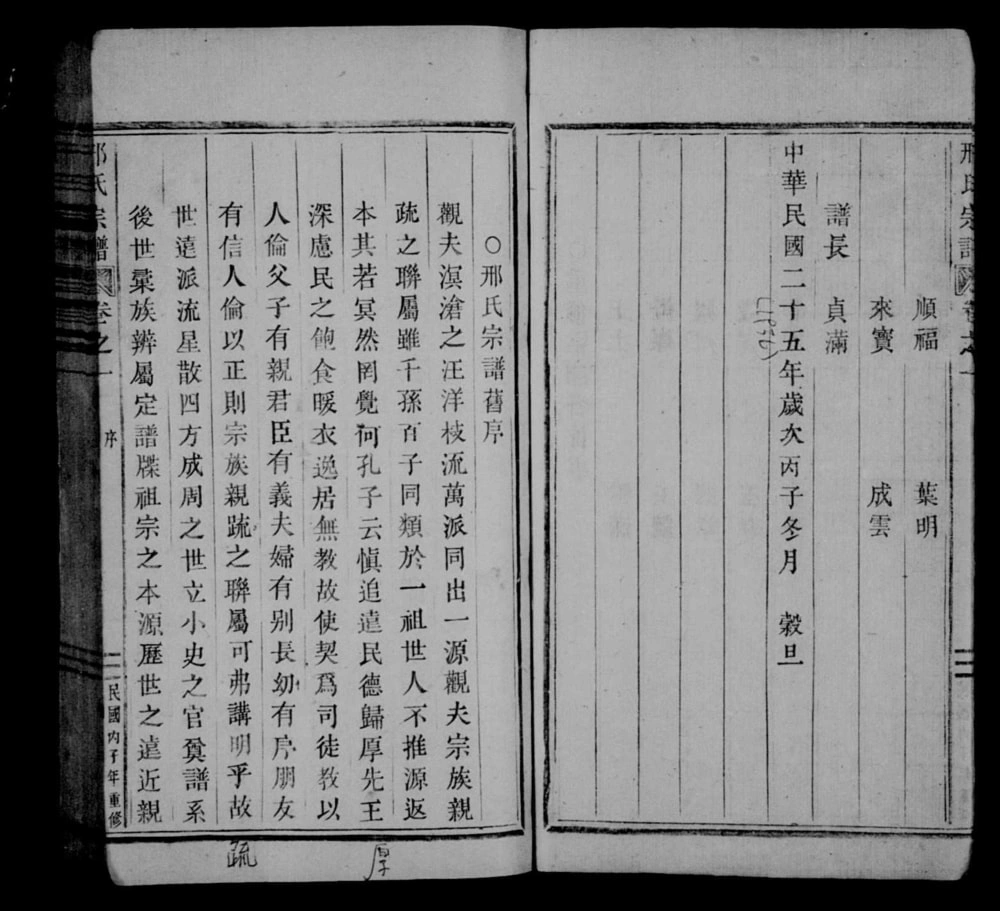 邢氏宗譜 卷之一
順福 葉明
來寶 成雲
譜長 貞滿
中華民國二十五年歲次丙子冬月 穀旦
(1936)
○邢氏宗譜舊序
觀夫溟滄之汪洋枝流萬派同出一源觀夫宗族親
疏之聯屬雖千孫百子同類於一祖世人不推源返
本其若冥然罔覺何孔子云慎追遠民德歸厚先王
深慮民之飽食暖衣逸居無教故使契爲司徒教以
人倫父子有親君臣有義夫婦有别長幼有序朋友
有信人倫以正則宗族親疏之聯屬可弗講明乎故
世遠派流星散四方成周之世立小史之官奠譜系
後世彙族辨屬定譜牒祖宗之本源歷世之遠近親
邢氏宗譜 卷之一 序 二 民國丙子年重修
疏
厚